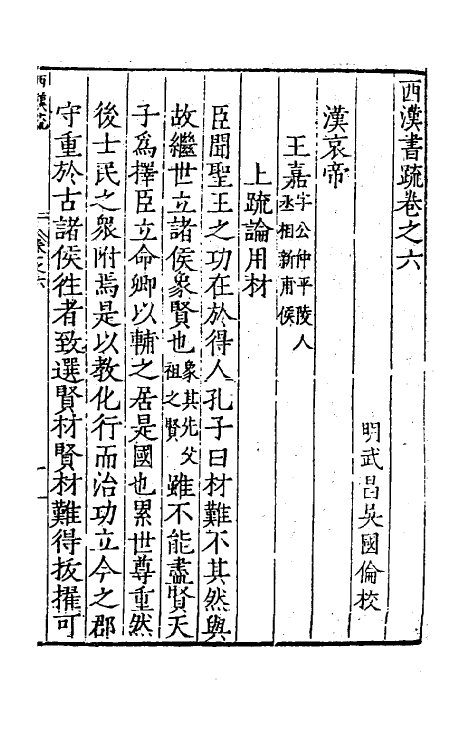 西漢書疏卷之六
明武昌吳國倫校
漢哀帝
王嘉字公仲平陵人丞相新甫侯
上疏論用材
臣聞聖王之功在於得人孔子曰材難不其然與
故繼世立諸侯象賢也象其先父祖之賢雖不能盡賢天
子為擇臣立命卿以輔之居是國也累世尊重然
後士民之衆附焉是以教化行而治功立今之郡
守重於古諸侯徃者致選賢材賢材難得拔擢可
西漢疏
卷之六
一